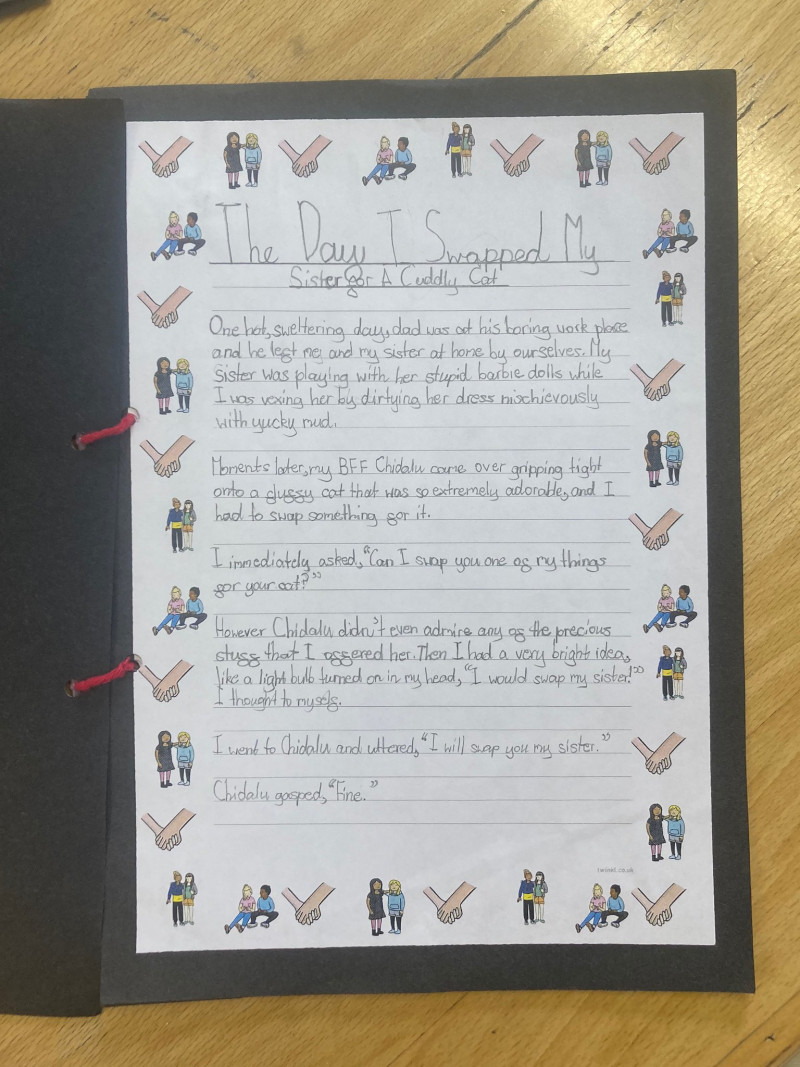 The Day I Swapped My
Sister for A Cuddly Cat
One hot, sweltering day, dad was at his boring work place
and he left me and my sister at home by ourselves. My
sister was playing with her stupid barbie dolls while
I was vexing her by dirtying her dress mischievously
with yucky mud.
Moments later, my BFF Chidalu came over gripping tight
onto a fluffy cat that was so extremely adorable, and I
had to swap something for it.
I immediately asked, “Can I swap you one of my things
for your cat?”
However Chidalu didn't even admire any of the precious
stuff that I offered her. Then I had a very bright idea,
like a light bulb turned on in my head, “I would swap my sister!”
I thought to myself.
I went to Chidalu and uttered, “I will swap you my sister.”
Chidalu gasped, “Fine.”
twinkl.co.uk